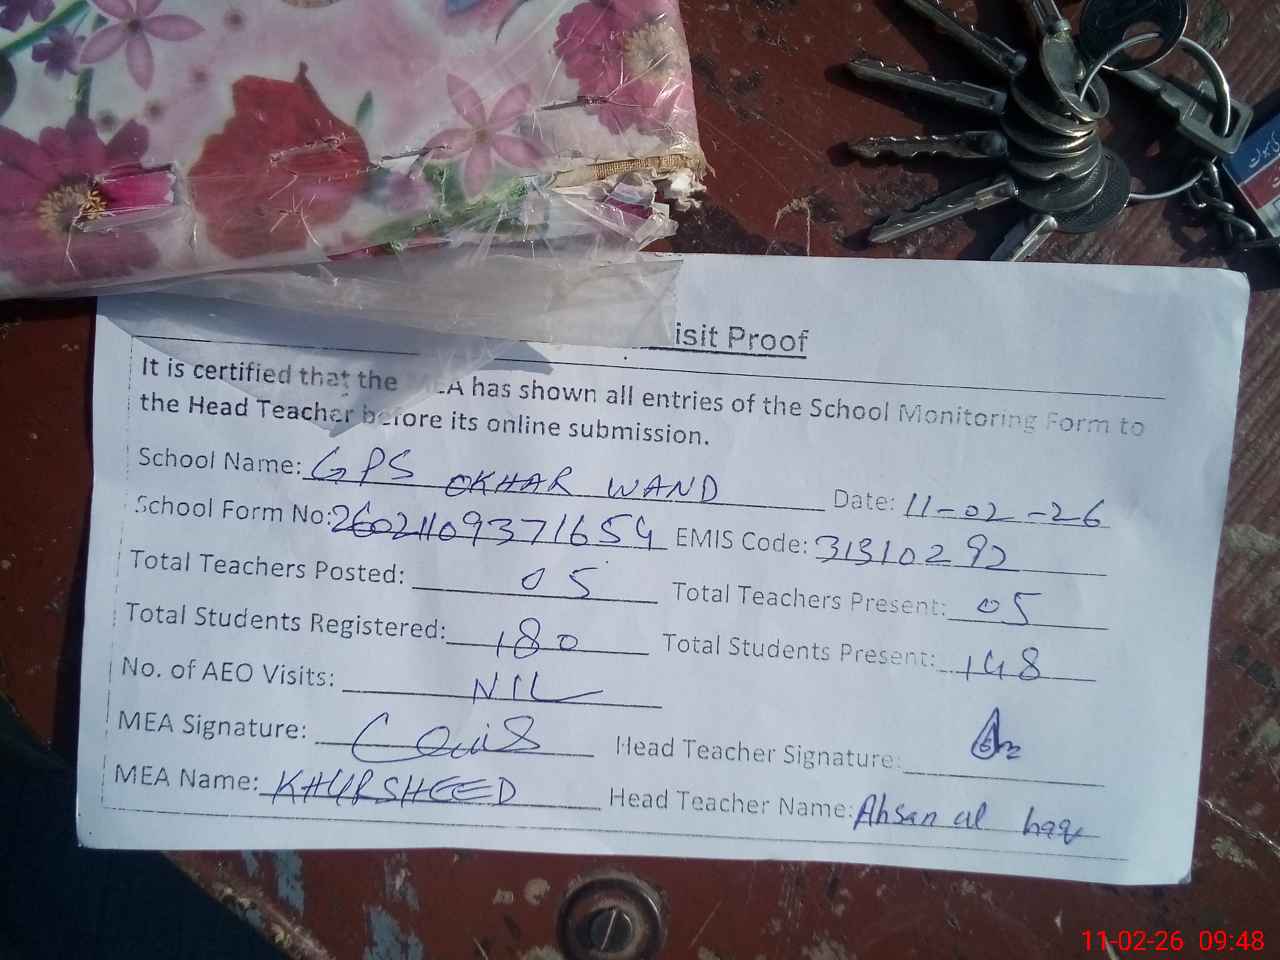 isit Proof
It is certified that the MEA has shown all entries of the School Monitoring Form to
the Head Teacher before its online submission.
School Name: GPS OKHAR WAND Date: 11-02-26
School Form No: 26021109371654 EMIS Code: 31310292
Total Teachers Posted: 05 Total Teachers Present: 05
Total Students Registered: 180 Total Students Present: 148
No. of AEO Visits: NIL
MEA Signature: Head Teacher Signature:
MEA Name: KHURSHEED Head Teacher Name: Ahsan ul haq
11-02-26 09:48